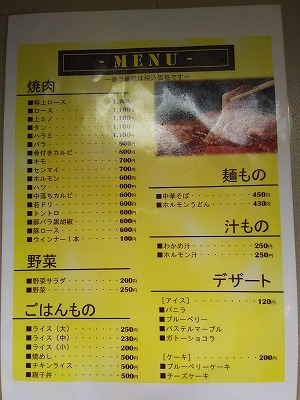 - MENU -
―表示価格は税込価格です―
焼肉
■特上ロース・・・・・・1,300円
■ロース・・・・・・・・1,100円
■上ミノ・・・・・・・・1,100円
■タン・・・・・・・・・1,100円
■ハラミ・・・・・・・・1,100円
■バラ・・・・・・・・・900円
■骨付きカルビ・・・・・800円
■キモ・・・・・・・・・700円
■センマイ・・・・・・・700円
■ホルモン・・・・・・・600円
■ハツ・・・・・・・・・600円
■中落ちカルビ・・・・・600円
■若ドリ・・・・・・・・600円
■トントロ・・・・・・・600円
■豚バラ黒胡椒・・・・・600円
■豚ロース・・・・・・・600円
■ウインナー1本・・・・100円
野菜
■野菜サラダ・・・・・・200円
■野菜・・・・・・・・・250円
ごはんもの
■ライス（大）・・・・・250円
■ライス（中）・・・・・230円
■ライス（小）・・・・・200円
■焼めし・・・・・・・・500円
■チキンライス・・・・・500円
■親子丼・・・・・・・・500円
麺もの
■中華そば・・・・・・・450円
■ホルモンうどん・・・・430円
汁もの
■わかめ汁・・・・・・・250円
■ホルモン汁・・・・・・250円
デザート
［アイス］・・・・・・・120円
■バニラ
■ブルーベリー
■パステルマーブル
■ガトーショコラ
［ケーキ］・・・・・・・200円
■ブルーベリーケーキ
■チーズケーキ